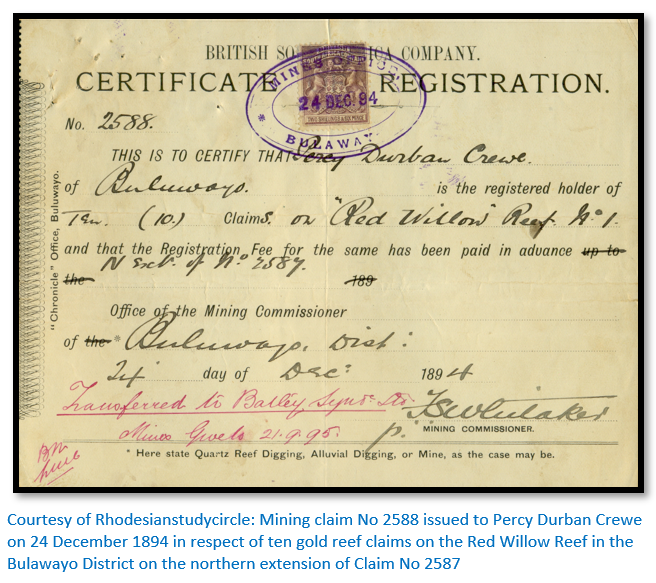 BRITISH SO CA COMPANY.
CERTIFICATE REGISTRATION.
MINES OFFICE
24 DEC. 94
TWO SHILLINGS & SIX PENCE
* BULAWAY
No. 2588.
THIS IS TO CERTIFY THAT Percy Durban Crewe.
of Buluwayo. is the registered holder of
Ten. (10.) Claims. on "Red Willow" Reef No 1.
and that the Registration Fee for the same has been paid in advance up to
the N Ext. of No 2587. 189
Office of the Mining Commissioner
of the * Buluwayo. Dist:
day of Dec: 1894
Transferred to Synd:
Mines Gwelo 21.9.95.
p. MINING COMMISSIONER.
* Here state Quartz Reef Digging, Alluvial Digging, or Mine, as the case may be.
"Chronicle" Office, Buluwayo.
Courtesy of Rhodesianstudycircle: Mining claim No 2588 issued to Percy Durban Crewe
on 24 December 1894 in respect of ten gold reef claims on the Red Willow Reef in the
Bulawayo District on the northern extension of Claim No 2587